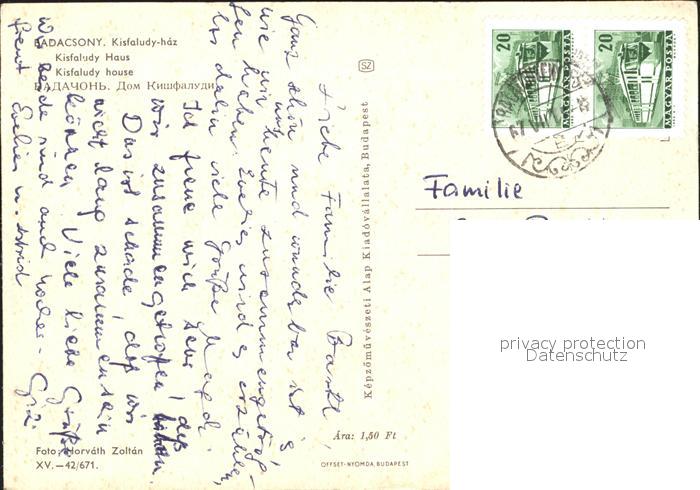 BADACSONY. Kisfaludy-ház
Kisfaludy Haus
Kisfaludy house
БАДАЧОНЬ. Дом Кишфалуди
Liebe Familie
Ganz schön und wunderbar ist es
wie wir heute zusammengetrof-
fen haben. Evelies wird es erzählen,
bis dahin viele Grüße Magdi
Ich freue mich sehr, daß
wir zusammengetroffen
Das ist schade, daß wir
nicht lang zusammen sein
können Viele liebe Grüße
wir beide sind auch
freut Evelies u. Astrid
Foto: Horváth Zoltán
XV.—42/671.
SZ
Képzőművészeti Alap Kiadóvállalata, Budapest
Ára: 1,50 Ft
OFFSET-NYOMDA, BUDAPEST
20
MAGYAR POSTA
20
MAGYAR POSTA
Familie
privacy protection
Datenschutz